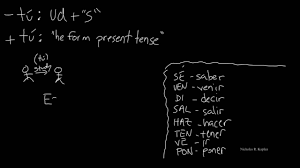 - tú: Ud + "s"
+ tú: "he form present tense"
(tú)
E-
SÉ - saber
VEN - venir
DI - decir
SAL - salir
HAZ - hacer
TEN - tener
VE - ir
PON - poner